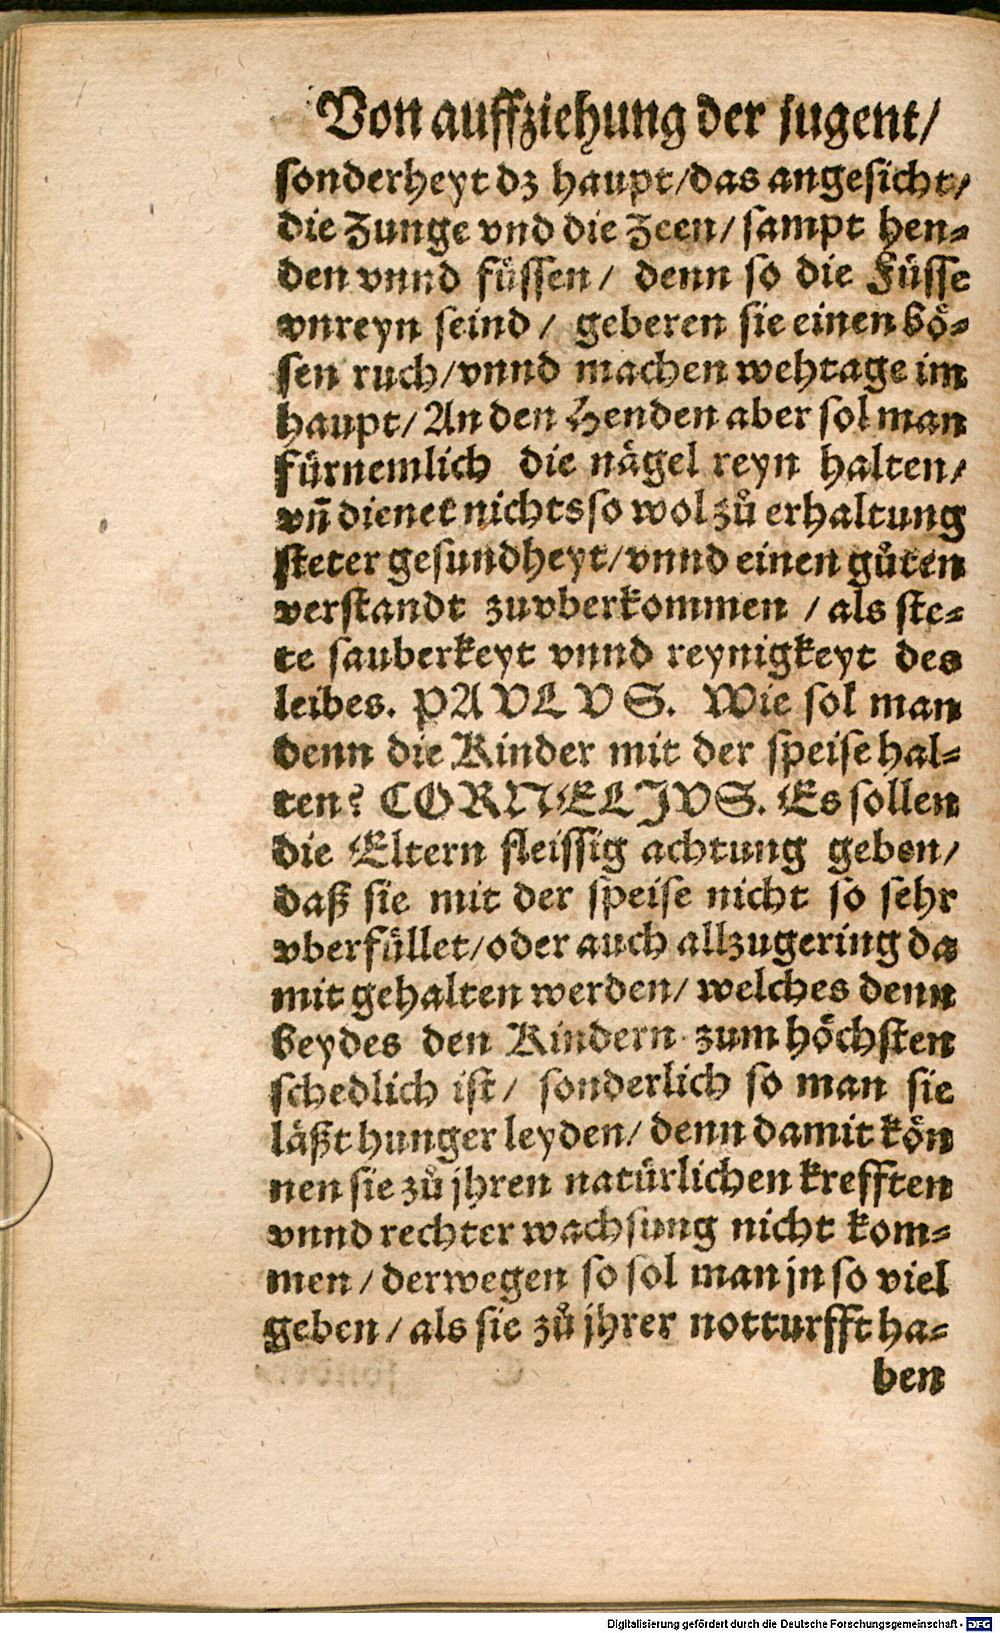 Von auffziehung der jugent/
sonderheyt dz haupt/das angesicht/
die Zunge vnd die Zeen/sampt hen⸗
den vnnd füssen/ denn so die Füsse
vnreyn seind/ geberen sie einen bö⸗
sen ruch/vnnd machen wehtage im
haupt/An den Henden aber sol man
fürnemlich die nägel reyn halten/
vñ dienet nichts so wol zů erhaltung
steter gesundheyt/vnnd einen gůten
verstandt zuvberkommen/als ste⸗
te sauberkeyt vnnd reynigkeyt des
leibes. PAVLVS. Wie sol man
denn die Kinder mit der speise hal⸗
ten? CORNELJVS. Es sollen
die Eltern fleissig achtung geben/
daß sie mit der speise nicht so sehr
vberfüllet/oder auch allzugering da
mit gehalten werden/ welches denn
beydes den Kindern zum höchsten
schedlich ist/ sonderlich so man sie
läßt hunger leyden/ denn damit kön
nen sie zů jhren natürlichen krefften
vnnd rechter wachsung nicht kom⸗
men/derwegen so sol man jn so viel
geben/als sie zů jhrer notturfft ha⸗
ben
Digitalisierung gefördert durch die Deutsche Forschungsgemeinschaft - DFG